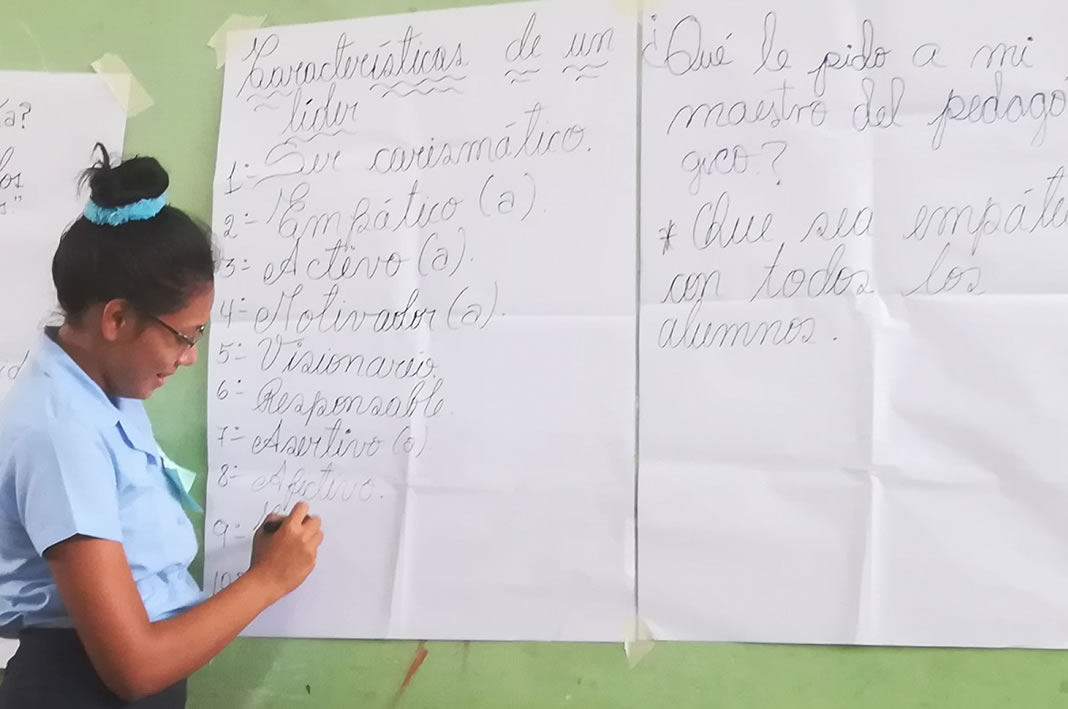 a?
Características de un
líder
1:- Ser carismático.
2:- Empático (a).
3:- Activo (a).
4:- Motivador (a).
5:- Visionario.
6:- Responsable.
7:- Asertivo (a)
8:- Afectivo.
9:-
10:-
¿Qué le pido a mi
maestro del pedagó
gico?
* Que sea empáti
con todos los
alumnos.